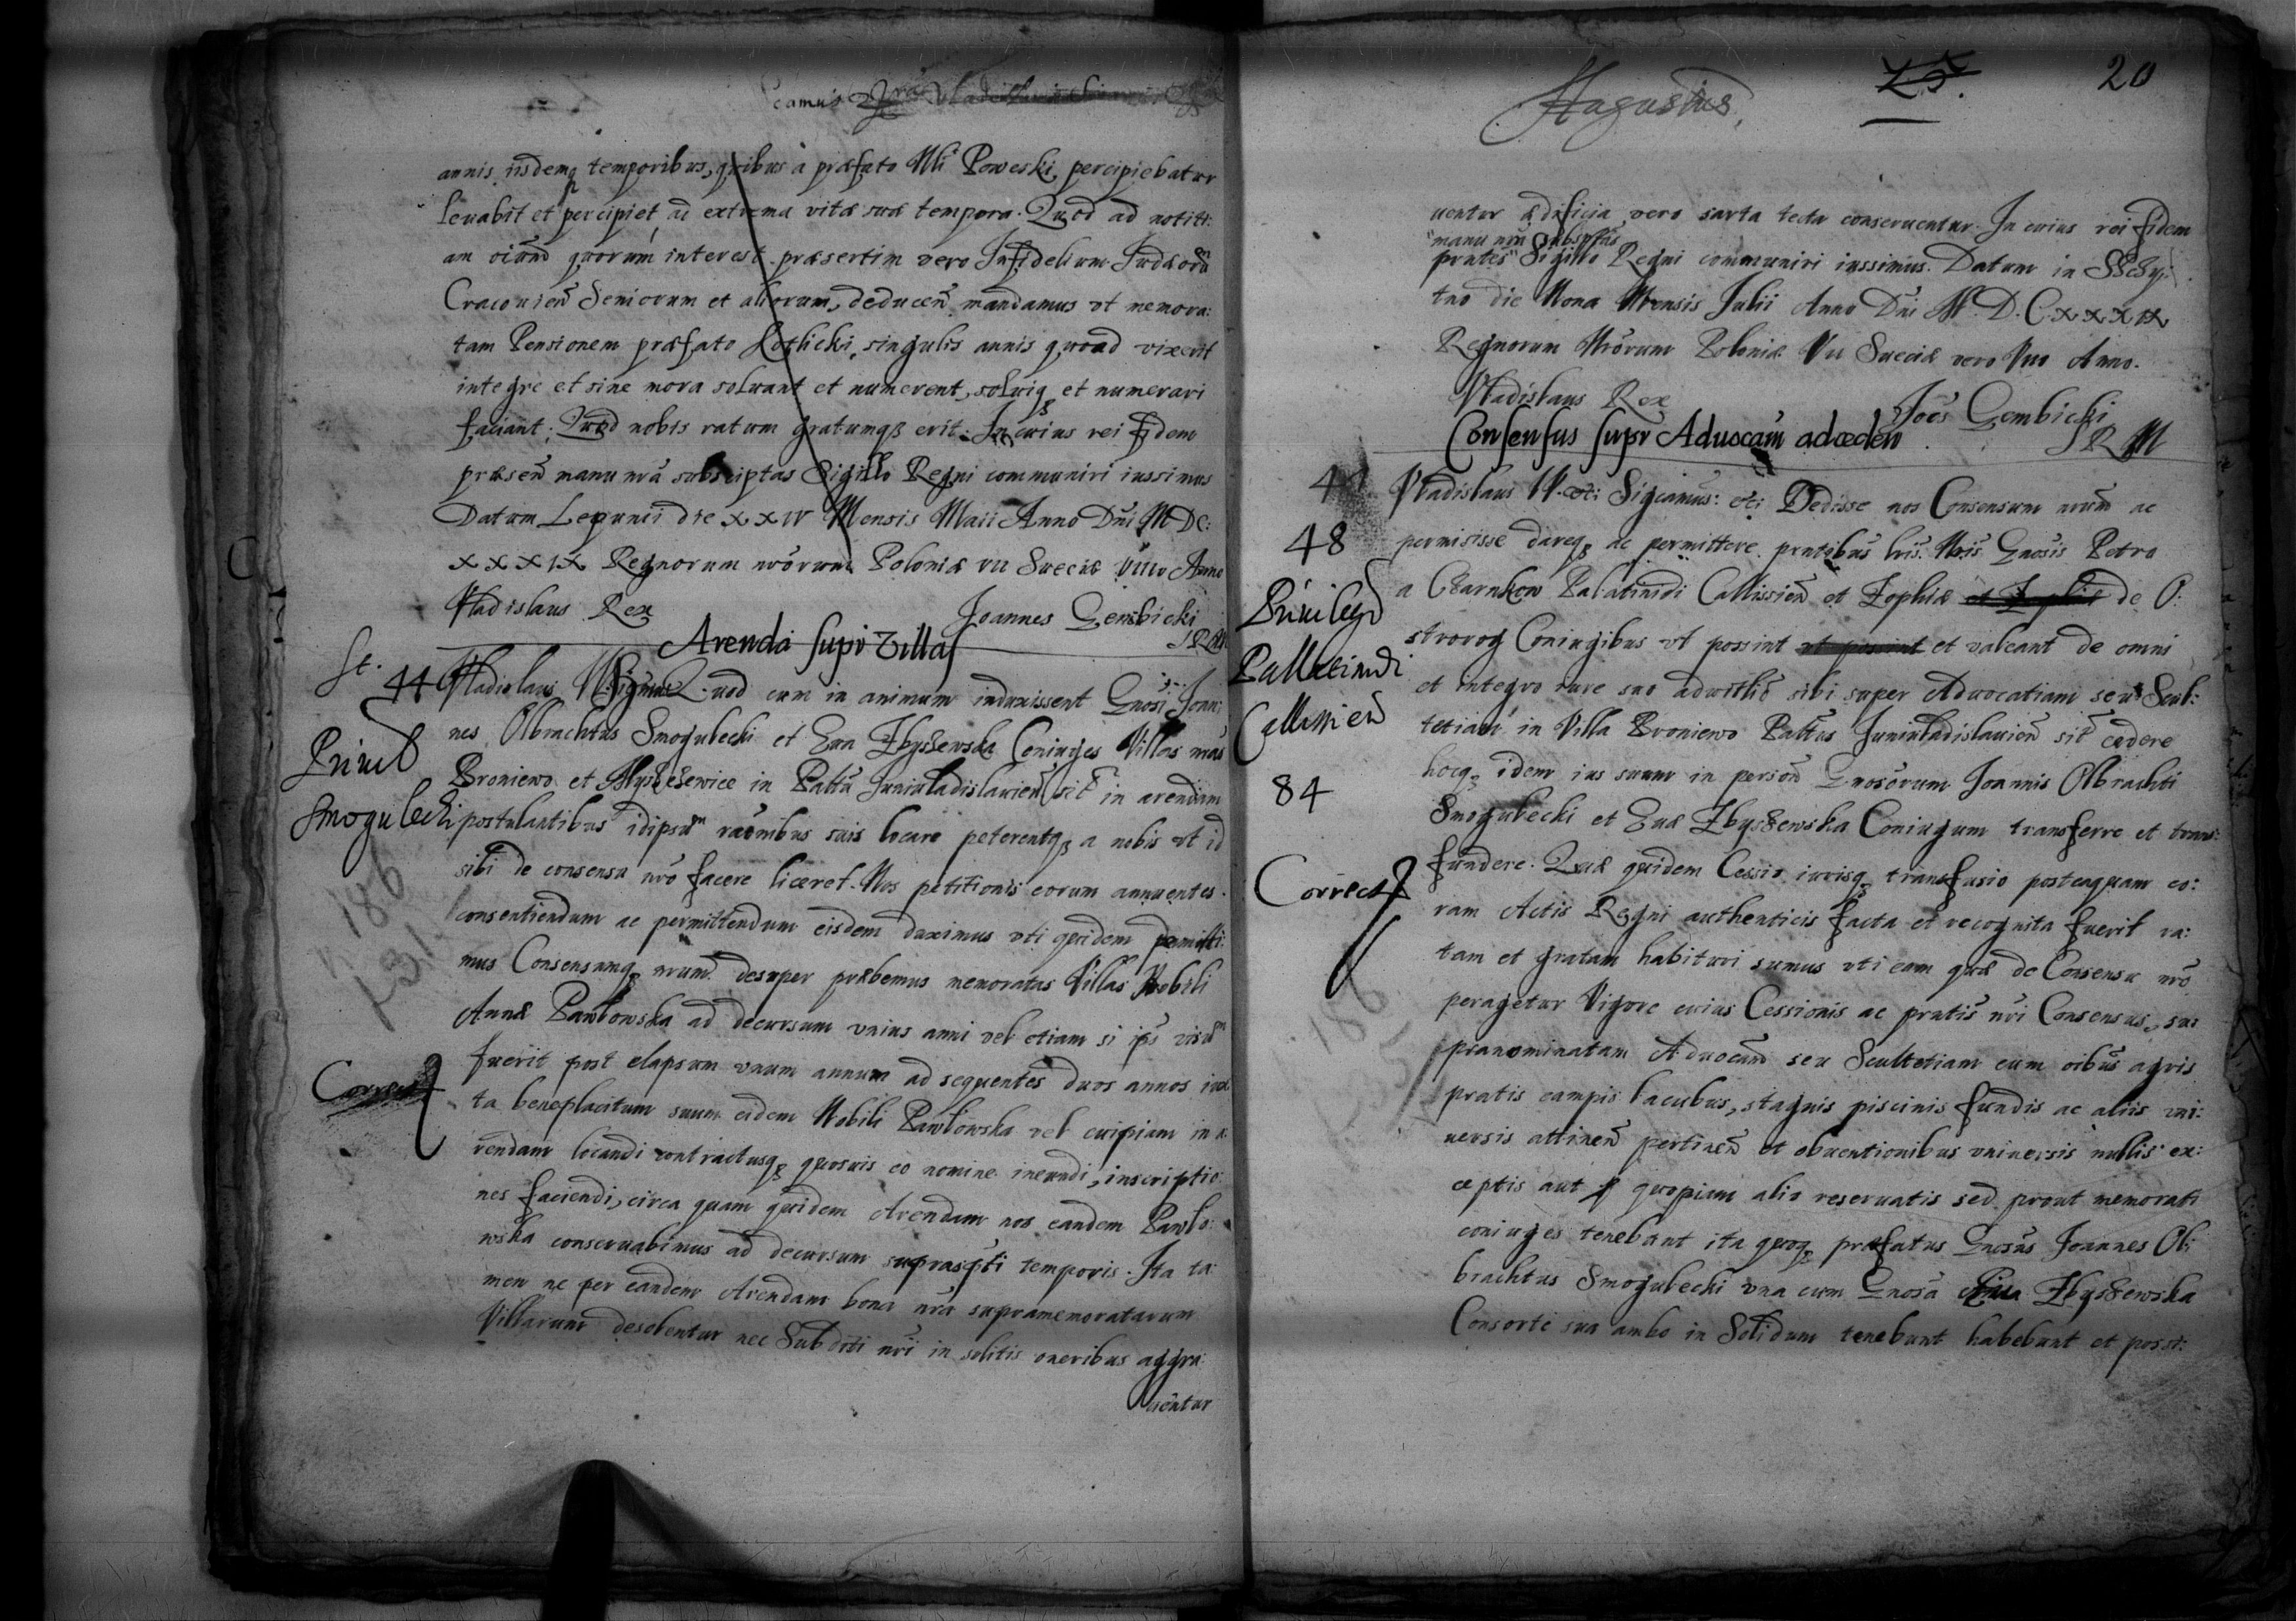 camus
annis iisdemq temporibus, quibus à præfato Nli Poweski percipiebatur
levabit et percipiet ad extrema vitæ suæ tempora. Quod ad notiti:
am oium quorum interest præsertim vero Infidelium Judæorum
Cracouien Seniorum et aliorum, deducen mandamus vt memora:
tam Pensionem præfato Kotlicki, singulis annis quoad vixerit
integre et sine mora soluant et numerent, soluiq et numerari
faciant; Quod nobis ratum gratumq erit. In cuius rei fidem
præsen manu nra subscriptas Sigillo Regni communiri iussimus
Datum die XXIV Mensis Maii Anno Dni MDC:
XXXIX Regnorum nrorum Poloniæ VII Sueciæ VIII Anno
Vladislaus Rex
Joannes Gembicki
Arenda supr Villas
44 Vladislaus Quod cum in animum induxissent Gnosi Joan:
nes Olbrachtus Smogulecki et Eua Zbyszewska Coniuges Villas nras
Broniewo et in Pallu Juniuladislauien sit in arendam
Priuil
Smogulecki
postulantibus idipsum raonibus suis locare peterentq a nobis vt id
sibi de consensu nro facere liceret. Nos petitionis eorum annuentes
186
consentiendum ac permittendum eisdem duximus vti quidem permitti:
mus Consensumq nrum desuper præbemus memoratas Villas Nobili
Annæ Pawlowska ad decursum vnius anni vel etiam si ips visum
fuerit post elapsum vnum annum ad sequentes duos annos iux
Correct
ta beneplacitum suum eidem Nobili Pawlowska vel cuipiam in a
rendam locandi contractusq quosuis eo nomine ineundi, inscriptio:
nes faciendi, circa quam quidem Arendam nos eandem Pawlo:
wska conseruabimus ad decursum suprascpti temporis. Ita ta:
men ne per eandem Arendam bona nra supramemoratarum
Villarum desolentur nec Subditi nri in solitis oneribus aggra:
uentur
Augustus,
20
uentur ædificia vero sarta tecta conseruentur. In cuius rei fidem
manu nra subscptas
pntes Sigillo Regni communiri iussimus. Datum in
tno die Nona Mensis Julii Anno Dni M.D.C.XXXIX
Regnorum Nrorum Poloniæ VII Sueciæ vero VIII Anno.
Vladislaus Rex
Joës Gembicki
RM
Consensus supr Aduocam adceden
48
Vladislaus IV. etc: Sigcamus: etc: Dedisse nos Consensum nrum ac
permisisse dareq ac permittere pntibus lris Nris Gnosis Petro
a Czarnkow Palatinidi Callissien et Zophiæ et Zophiæ de O:
Priuilegd
Pallatinidi
Callissien
84
strorog Coniugibus vt possint vt possint et valeant de omni
et integro iure suo aduitlit sibi super Aduocatiam seu Scul:
tetiam in Villa Broniewo Pallus Juniuladislauien sit cedere
hocq idem ius suum in person Gnosorum Joannis Olbrachti
Smogulecki et Euæ Zbyszewska Coniugum transferre et trans:
Correct
fundere. Quæ quidem Cessio iurisq transfusio posteaquam co:
ram Actis Regni authenticis facta et recognita fuerit ra:
tam et gratam habituri sumus vti eam quæ de Consensu nro
peragetur Vigore cuius Cessionis ac pntis nri Consensus, su:
186
prænominatam Aduocam seu Scultetiam cum oibus agris
pratis campis lacubus, stagnis piscinis fundis ac aliis vni:
uersis attinen pertinen et obuentionibus vniuersis nullis ex:
ceptis aut quopiam alio reseruatis sed prout memorati
coniuges tenebant ita quoq præfatus Gnosus Joannes Ol:
brachtus Smogulecki vna cum Gnosa Eua Zbyszewska
Consorte sua ambo in Solidum tenebunt habebunt et possi: